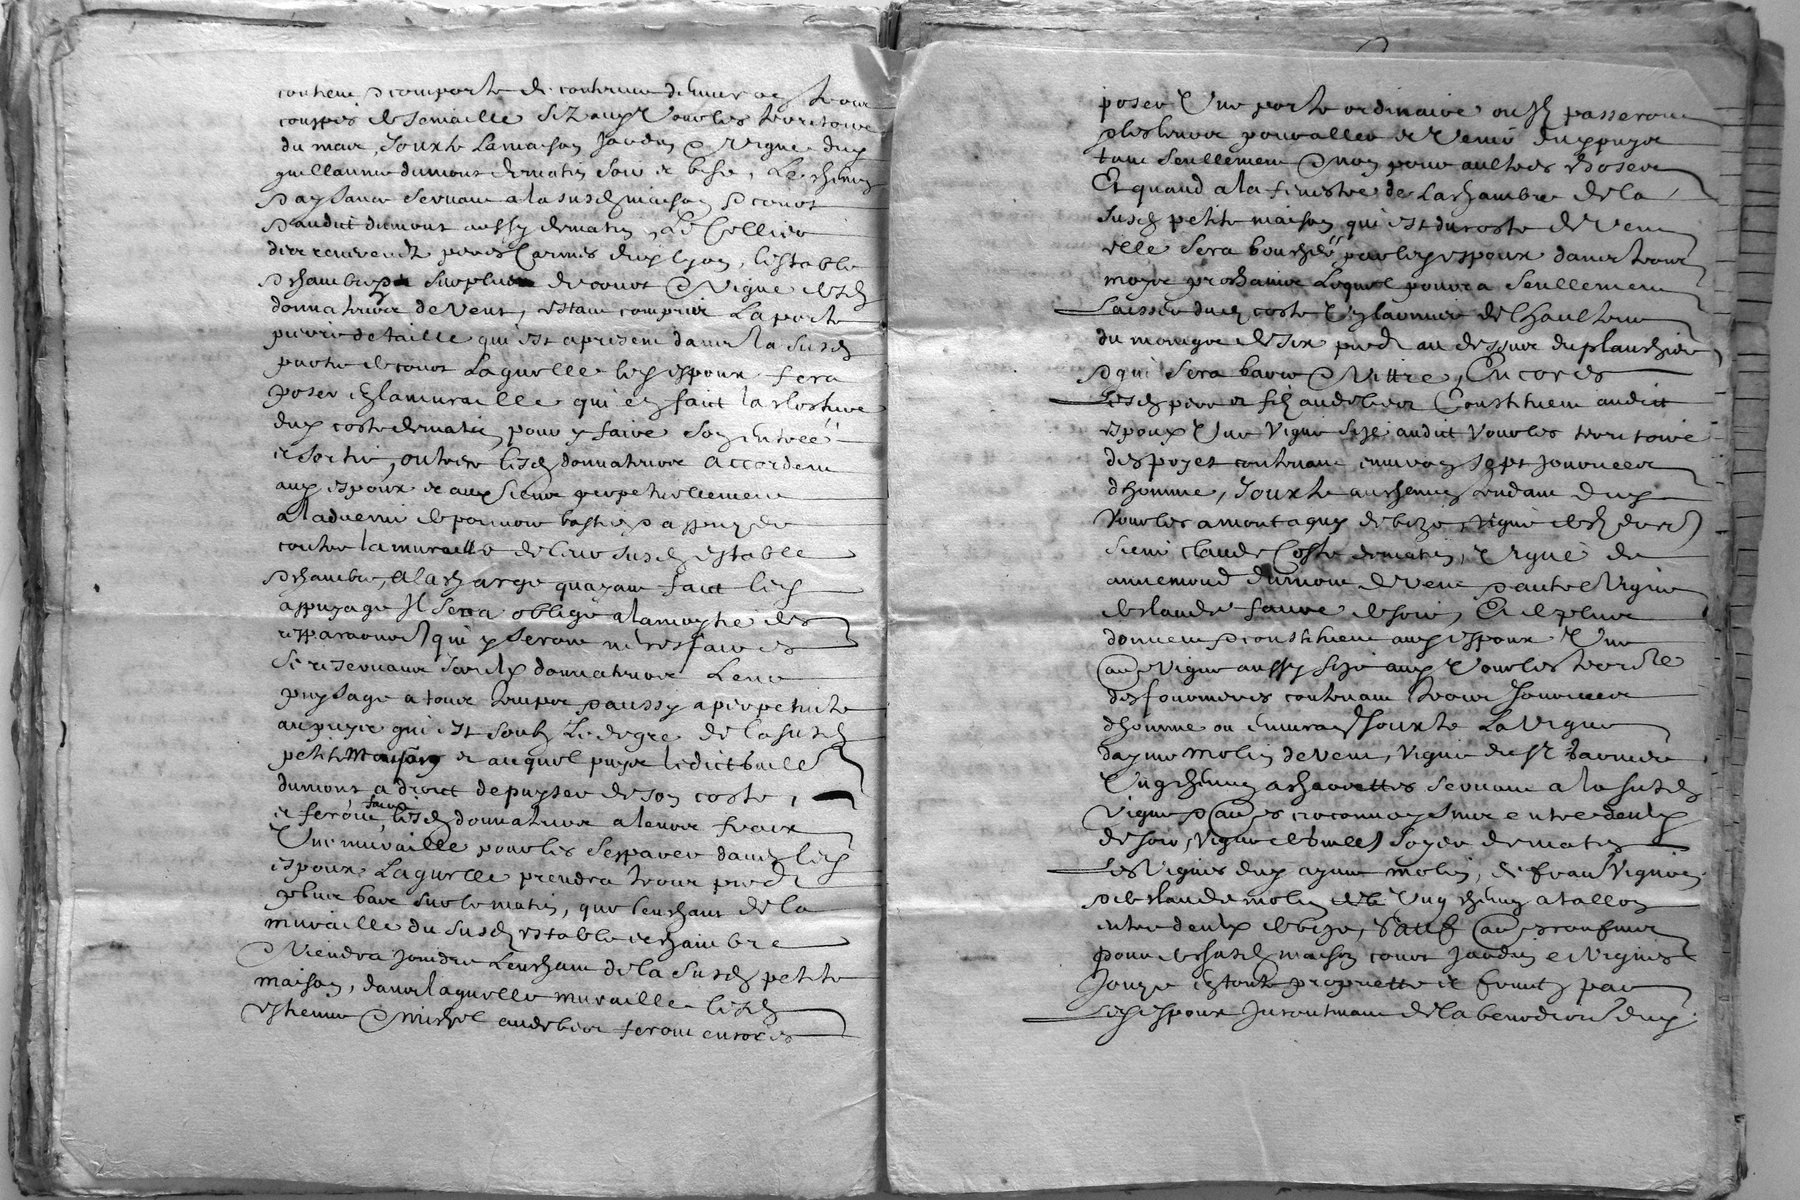 contient & comporte & contenue denviron trois
couppés de semaille size aux Vourles territoire
du mas, Jouxte la maison Jardin & vigne dud
guillaume dumont de matin soir et bise, le chemin
& aysance servant a la susd maison & court
& audict dumont aussy de matin, le cellier
des reverendz peres Carmes dud lyon, lestable
& chambre sur plus de court & vigne desd
donnateurs de vent, estant comprins la porte
pierre de taille qui est a present dans la susd
partie de court laquelle led espoux fera
poser en la muraille qui en faict la closture
dud costé de matin pour y faire son entrée
et sortie, outre lesd donnateurs accordent
aud espoux et aux siens perpetuellement
a ladvenir de pouvoir bastir & appuyer
contre la muraille de leur susd estable
& chambre, a la charge quayant faict led
appuyage Il sera obligé a la moytié des
repparations qui y seront necessaires
se reservants iceulx donnateurs leur
puysage a tous temps & aussy a perpetuité
au puys qui est soubz le degré de la susd
petite maison et auquel puys ledict
dumont a droict de puyser de son costé,
et feront faire lesd donnateurs a leurs fraix
Une muraille pour les separer davec led
espoux laquelle prendra trois pieds
plus bas sur le matin, que lenchant de la
muraille du susd estable et chambre
& viendra joindre lenchant de la susd petite
maison, dans laquelle muraille lesd
estienne & michel audebier feront encores
poser Une porte ordinaire ou Ilz passeront
& les leurs pour aller et venir dud puys
tant seullement & non pour aultres choses
Et quand a la fenestre de la chambre de la
susd petite maison qui est du costé de vent
elle sera bouchée par led espoux dans trois
moys prochains lequel pourra seullement
laisser dud costé Un larmier de lhaulteur
du moings de six pieds au dessus du planchier
& qui sera barré & vittré, Encores
lesd pere et filz audebier Constituent audict
espoux Une vigne size audict Vourles territoire
des poyet contenant environ sept journées
dhomme, Jouxte au chemin tendant dud
Vourles a montagny de bize, vigne dud
sieur claude Coste de matin, vigne de
annemond dumont de vent & autre vigne
de claude faure de soir, Et de plus
donnent & constituent aud espoux Une
autre vigne aussy size aud Vourles terroire
des fourneres contenant trois Journées
dhomme ou environ Jouxte la vigne
daymé molin de vent, vigne du sr
Ung chemin a charrettes servant a la susd
vigne & autres circonvoysines entre deulx
de soir, vigne de de matin
les vignes dud aymé molin, de vignier
& de claude molin Ung chemin a tallon
entre deulx de bize, sauf autres confins
pour de lasusd maison court Jardin et vignes
Jouyr en toute proprietté et fruits par
led espoux Incontinant de la benediction dud